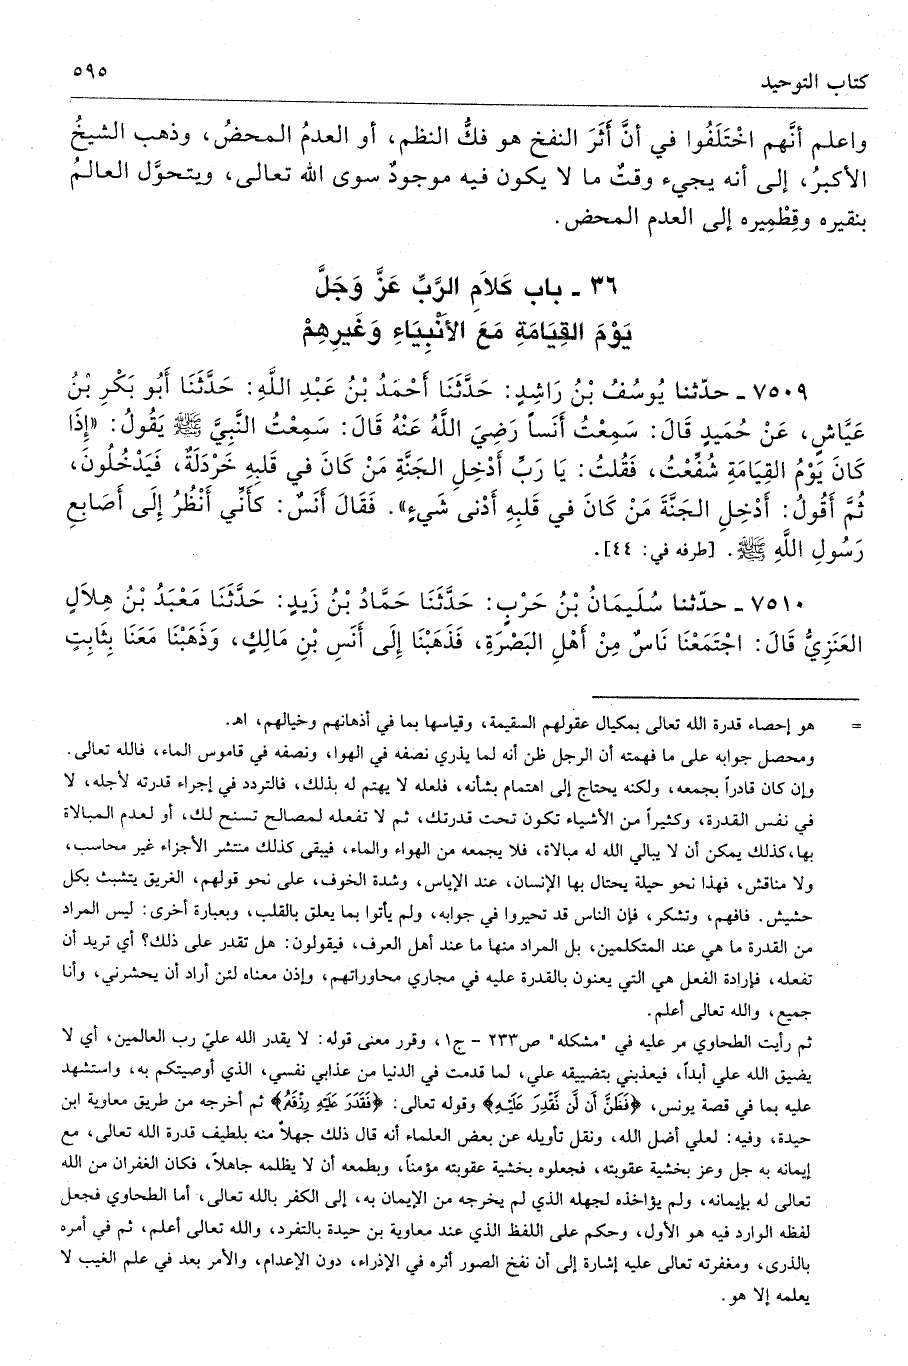 كتاب التوحيد
٥٩٥
واعلم أنَّهم اخْتَلَفُوا في أنَّ أَثَرَ النفخ هو فكُّ النظم، أو العدمُ المحضُ، وذهب الشيخُ
الأكبرُ، إلى أنه يجيء وقتٌ ما لا يكون فيه موجودٌ سوى الله تعالى، ويتحوَّل العالمُ
بنقيره وقِطْمِيره إلى العدم المحض.
٣٦ ـ باب كَلاَمِ الرَّبِّ عَزَّ وَجَلَّ
يَوْمَ القِيَامَةِ مَعَ الأَنْبِيَاءِ وَغَيرِهِمْ
٧٥٠٩ ـ حدّثنا يُوسُفُ بْنُ رَاشِدٍ: حَدَّثَنَا أَحْمَدُ بْنُ عَبْدِ اللَّهِ: حَدَّثَنَا أَبُو بَكْرِ بْنُ
عَيَّاشٍ، عَنْ حُمَيدٍ قَالَ: سَمِعْتُ أَنَساً رَضِيَ اللَّهُ عَنْهُ قَالَ: سَمِعْتُ النَّبِيَّ ﷺ يَقُولُ: «إِذَا
كَانَ يَوْمُ القِيَامَةِ شُفِّعْتُ، فَقُلتُ: يَا رَبِّ أَدْخِلِ الجَنَّةِ مَنْ كَانَ في قَلبِهِ خَرْدَلَةٌ، فَيَدْخُلُونَ،
ثُمَّ أَقُولُ: أَدْخِلِ الجَنَّةَ مَن كَانَ في قَلبِهِ أَدْنى شَيءٍ». فَقَالَ أَنَسٌ: كَأَنِّي أَنْظُرُ إِلَى أَصَابِعِ
رَسُولِ اللَّهِ ﷺ. [طرفه في: ٤٤].
٧٥١٠ ـ حدّثنا سُلَيمَانُ بْنُ حَرْبٍ: حَدَّثَنَا حَمَّادُ بْنُ زَيدٍ: حَدَّثَنَا مَعْبَدُ بْنُ هِلاَلٍ
العَنَزِيُّ قَالَ: اجْتَمَعْنَا نَاسٌ مِنْ أَهْلِ البَصْرَةِ، فَذَهَبْنَا إِلَى أَنَسِ بْنِ مَالِكٍ، وَذَهَبْنَا مَعَنَا بِثَابِتٍ
= هو إحصاء قدرة الله تعالى بمكيال عقولهم السقيمة، وقياسها بما في أذهانهم وخيالهم، اهـ.
ومحصل جوابه على ما فهمته أن الرجل ظن أنه لما يذري نصفه في الهوا، ونصفه في قاموس الماء، فالله تعالى.
وإن كان قادراً بجمعه، ولكنه يحتاج إلى اهتمام بشأنه، فلعله لا يهتم له بذلك، فالتردد في إجراء قدرته لأجله، لا
في نفس القدرة، وكثيراً من الأشياء تكون تحت قدرتك، ثم لا تفعله لمصالح تسنح لك، أو لعدم المبالاة
بها، كذلك يمكن أن لا يبالي الله له مبالاة، فلا يجمعه من الهواء والماء، فيبقى كذلك منتشر الأجزاء غير محاسب،
ولا مناقش، فهذا نحو حيلة يحتال بها الإنسان، عند الإياس، وشدة الخوف، على نحو قولهم، الغريق يتشبث بكل
حشيش. فافهم، وتشكر، فإن الناس قد تحيروا في جوابه، ولم يأتوا بما يعلق بالقلب، وبعبارة أخرى: ليس المراد
من القدرة ما هي عند المتكلمين، بل المراد منها ما عند أهل العرف، فيقولون: هل تقدر على ذلك؟ أي تريد أن
تفعله، فإرادة الفعل هي التي يعنون بالقدرة عليه في مجاري محاوراتهم، وإذن معناه لئن أراد أن يحشرني، وأنا
جميع، والله تعالى أعلم.
ثم رأيت الطحاوي مر عليه في "مشكله" ص٢٣٣ - ج١، وقرر معنى قوله: لا يقدر الله عليّ رب العالمين، أي لا
يضيق الله علي أبداً، فيعذبني بتضييقه علي، لما قدمت في الدنيا من عذابي نفسي، الذي أوصيتكم به، واستشهد
عليه بما في قصة يونس، ﴿فَظَنَّ أَن لَّن نَّقْدِرَ عَلَيْهِ﴾ وقوله تعالى: ﴿فَقَدَرَ عَلَيْهِ رِزْقَهُ﴾ ثم أخرجه من طريق معاوية ابن
حيدة، وفيه: لعلي أضل الله، ونقل تأويله عن بعض العلماء أنه قال ذلك جهلاً منه بلطيف قدرة الله تعالى، مع
إيمانه به جل وعز بخشية عقوبته، فجعلوه بخشية عقوبته مؤمناً، وبطمعه أن لا يظلمه جاهلاً، فكان الغفران من الله
تعالى له بإيمانه، ولم يؤاخذه لجهله الذي لم يخرجه من الإيمان به، إلى الكفر بالله تعالى، أما الطحاوي فجعل
لفظه الوارد فيه هو الأول، وحكم على اللفظ الذي عند معاوية بن حيدة بالتفرد، والله تعالى أعلم، ثم في أمره
بالذرى، ومغفرته تعالى عليه إشارة إلى أن نفخ الصور أثره في الإذراء، دون الإعدام، والأمر بعد في علم الغيب لا
يعلمه إلا هو.